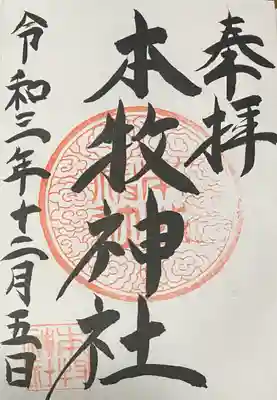 奉拝
本牧神社
令和三年十二月五日